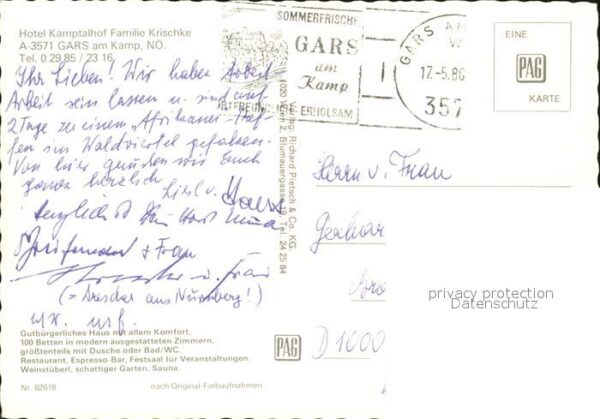 Hotel Kamptalhof Familie Krischke
A-3571 GARS am Kamp, NÖ.
Tel. 0 29 85 / 23 16
Ihr Lieben! Wir haben Arbeit
Arbeit sein lassen u. sind auf
2 Tage zu einem „Afrikaner-Tref-
fen ins Waldviertel gefahren.
Von hier grüßen wir Euch
ganz herzlich
Liesl u.
Herzlichst
u. Frau
(= Drescher aus Nürnberg!)
usw. usf.
Gutbürgerliches Haus mit allem Komfort,
100 Betten in modern ausgestatteten Zimmern,
größtenteils mit Dusche oder Bad/WC.
Restaurant, Espresso-Bar, Festsaal für Veranstaltungen,
Weinstüberl, schattiger Garten, Sauna.
Nr. 82618
nach Original-Farbaufnahmen
SOMMERFRISCHE
GARS
am
Kamp
ERHOLSAM
GARS AM
17.-5.86
357
Verlag: Richard Pietsch & Co. KG.
1020 Wien 2, Blumauergasse 19, Tel. 24 25 84
PAG
EINE
PAG
KARTE
Herrn u. Frau
Gerhar
D 1000
privacy protection
Datenschutz